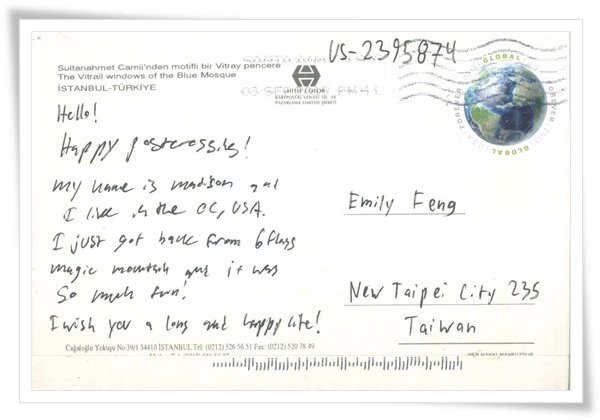 US-2395874
Sultanahmet Camii'nden motifli bir Vitray pencere
The Vitrail windows of the Blue Mosque
İSTANBUL-TÜRKİYE
COLOR
KARTPOSTAL SANAYİ VE
PAZARLAMA LİMİTED ŞİRKETİ
GLOBAL
FOREVER
USA FOREVER
GLOBAL
Hello!
Happy postcrossing!
My name is madison and
I live in the OC, USA.
I just got back from 6flags
magic mountain and it was
So much fun!
I wish you a long and happy life!
Emily Feng
New Taipei City 235
Taiwan
Cağaloğlu Yokuşu No:39/1 34410 İSTANBUL Tel: (0212) 526 56 51 Fax: (0212) 520 78 49